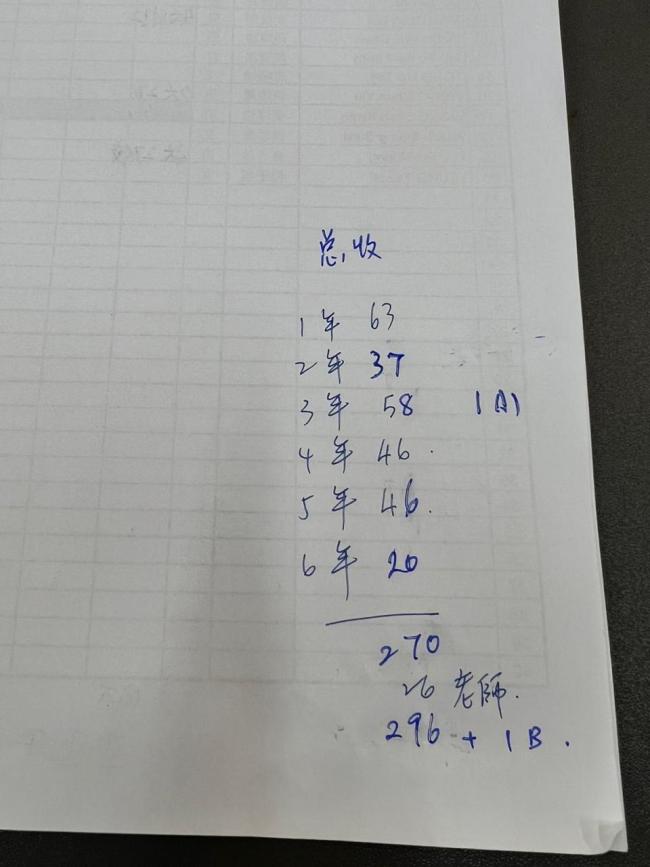 总收
1年 63
2年 37
3年 58 1A)
4年 46.
5年 46.
6年 20
270
26 老師.
296 + 1B.